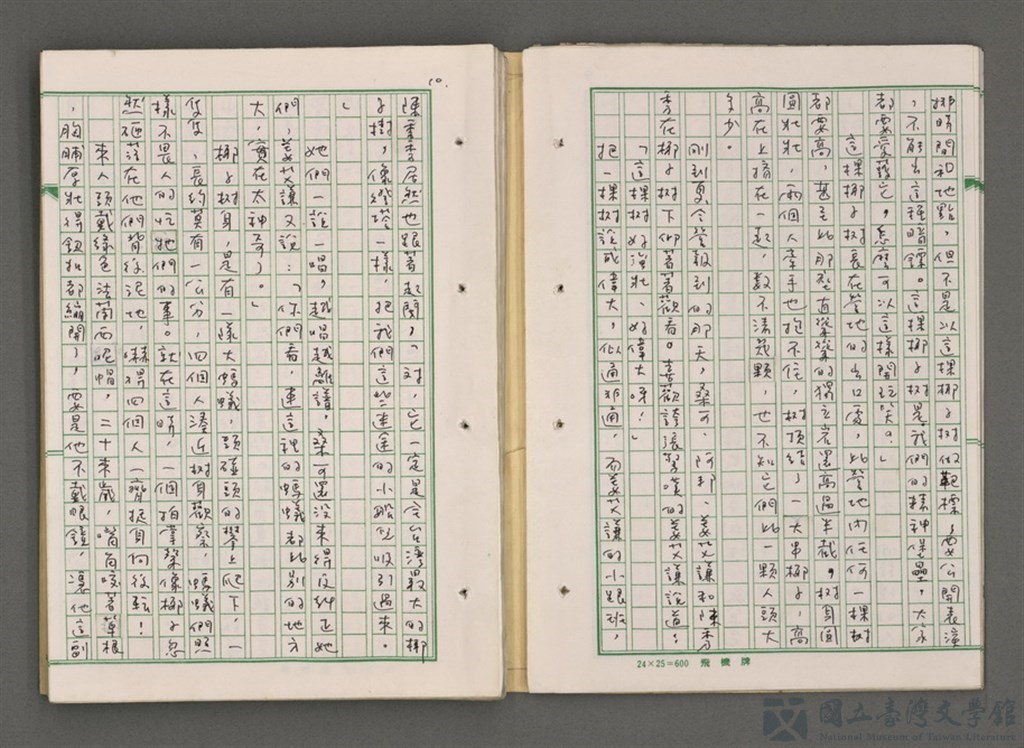 擲時間和地點，但不是以這棵椰子樹做靶標，要公開表演
，不能出這種暗鏢。這棵椰子樹是我們的精神堡壘，大家
都要愛護它，怎麼可以這樣開玩笑？」
這棵椰子樹長在營地的出口處，比營地內任何一棵樹
都要高，甚至比那望直聳聳的獨立岩還高過半截，樹身圓
圓壯壯，兩個人牽手也抱不住，樹頂結了一大串椰子，高
高在上擠在一起，數不清幾顆，也不知它們比一顆人頭大
多少。
剛到夏令營報到的那天，桑可、阿邦、姜苡謙和陳秀
秀在椰子樹下仰著著觀看。喜歡誇張的姜苡謙說道：
「這棵樹好強壯、好偉大呀！」
把一棵樹說成偉大，似通非通，而姜苡謙的小跟班，
10.
陳秀秀居然也跟著起鬨，「對，它一定是全台灣最大的椰
子樹，像燈塔一樣，把我們這些迷途的小船兒吸引過來。
」
她們一說一唱，越唱越離譜，桑可還沒來得及糾正她
們，姜苡謙又說：「你們看，連這裡的螞蟻都比別的地方
大，實在太神奇了。」
椰子樹身，是有一隊大螞蟻，頭碰頭的攀上爬下，一
隻隻，長約莫有一公分，四個人湊近樹身觀察，螞蟻們照
樣不畏人的忙牠們的事。就在這時，一個拍掌聲像椰子忽
然砸落在他們背後泥地，嚇得四個人一齊挺身向後轉！
來人頭戴綠色法蘭西呢帽，二十來歲，嘴角咬著草根
，胸脯厚壯得鈕扣都繃開了，要是他不戴眼鏡，憑他這副
24×25=600 飛機牌
國立臺灣文學館
National Museum of Taiwan Literature